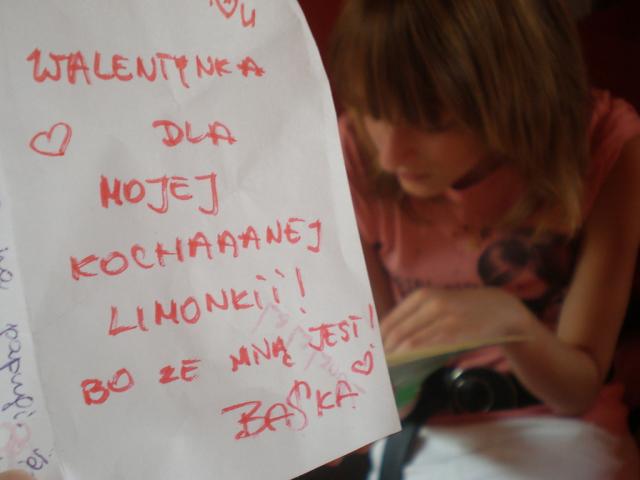 WALENTYNKA
DLA
MOJEJ
KOCHAAANEJ
LIMONKii!
BO ZE MNĄ JEST!
BAŚKA